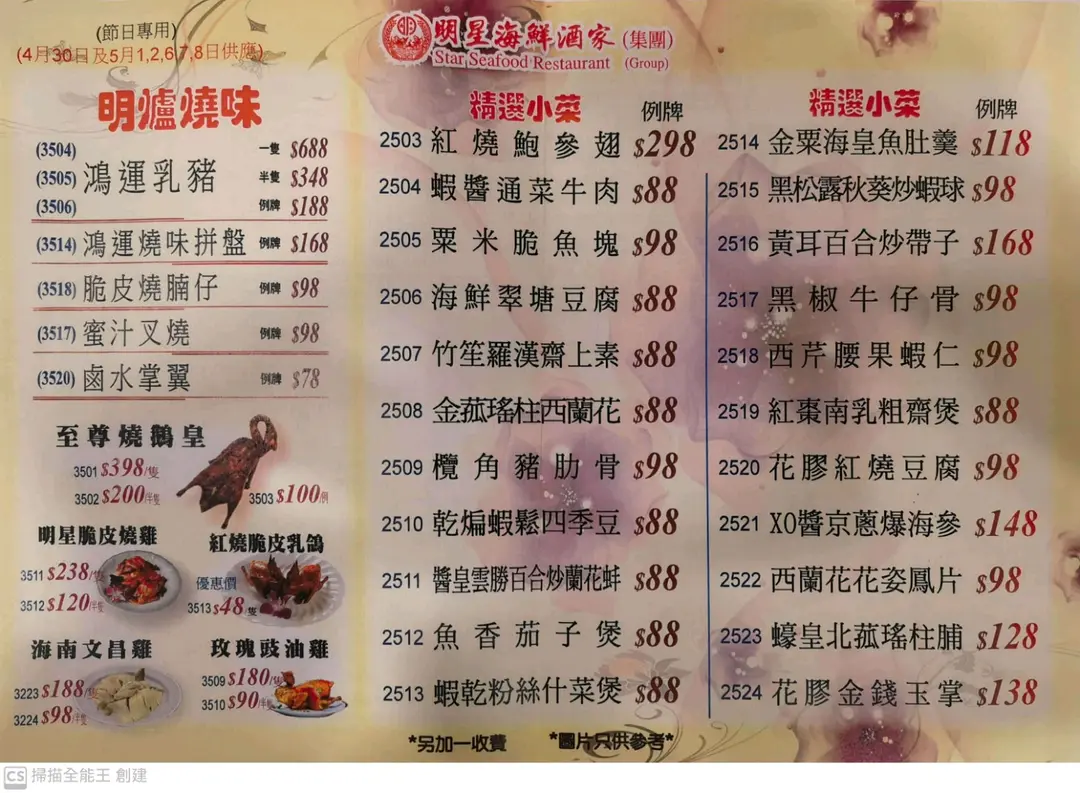 (節日專用)
(4月30日及5月1,2,6,7,8日供應)
明星海鮮酒家(集團)
Star Seafood Restaurant (Group)
明爐燒味
(3504) 一隻 $688
(3505) 鴻運乳豬 半隻 $348
(3506) 例牌 $188
(3514) 鴻運燒味拼盤 例牌 $168
(3518) 脆皮燒腩仔 例牌 $98
(3517) 蜜汁叉燒 例牌 $98
(3520) 鹵水掌翼 例牌 $78
至尊燒鵝皇
3501 $398/隻
3502 $200/半隻
3503 $100/例
明星脆皮燒雞
3511 $238/隻
3512 $120/半隻
紅燒脆皮乳鴿
優惠價
3513 $48/隻
海南文昌雞
3223 $188/隻
3224 $98/半隻
玫瑰豉油雞
3509 $180/隻
3510 $90/半隻
精選小菜 例牌
2503 紅燒鮑參翅 $298
2504 蝦醬通菜牛肉 $88
2505 粟米脆魚塊 $98
2506 海鮮翠塘豆腐 $88
2507 竹笙羅漢齋上素 $88
2508 金菰瑤柱西蘭花 $88
2509 欖角豬肋骨 $98
2510 乾煸蝦鬆四季豆 $88
2511 醬皇雲勝百合炒蘭花蚌 $88
2512 魚香茄子煲 $88
2513 蝦乾粉絲什菜煲 $88
精選小菜 例牌
2514 金粟海皇魚肚羹 $118
2515 黑松露秋葵炒蝦球 $98
2516 黃耳百合炒帶子 $168
2517 黑椒牛仔骨 $98
2518 西芹腰果蝦仁 $98
2519 紅棗南乳粗齋煲 $88
2520 花膠紅燒豆腐 $98
2521 XO醬京蔥爆海參 $148
2522 西蘭花花姿鳳片 $98
2523 蠔皇北菰瑤柱脯 $128
2524 花膠金錢玉掌 $138
*另加一收費 *圖片只供參考*
CS 掃描全能王 創建